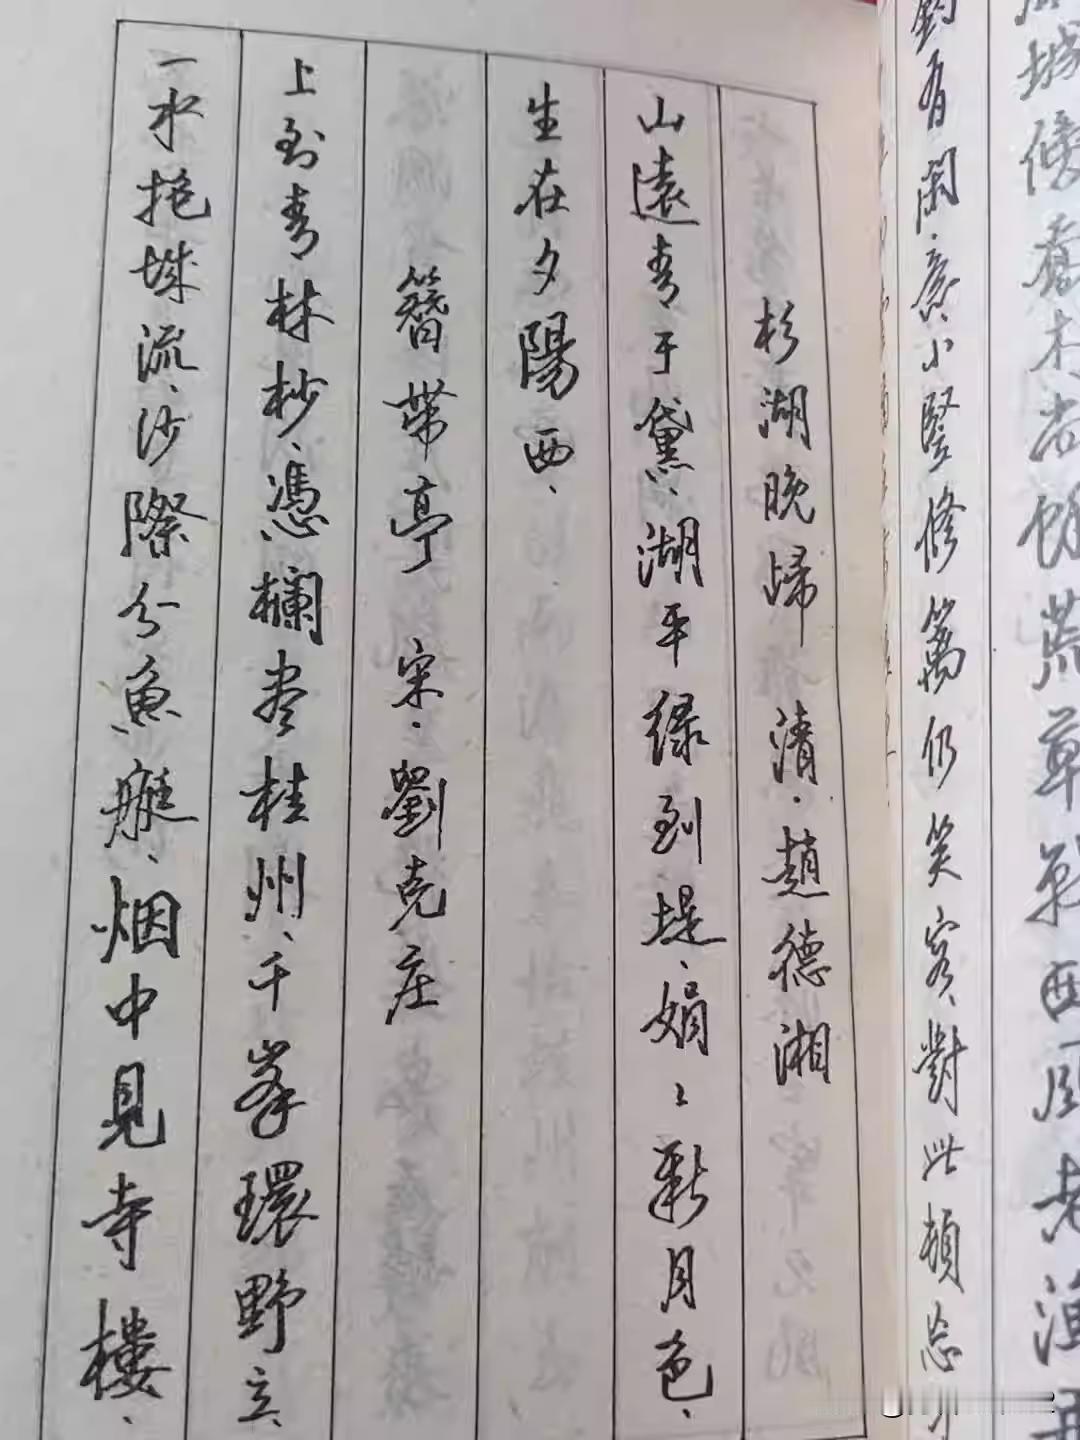 城喬木尚餘荒草戰西風老漁
釣有閑、意、小豎修篱仍笑容、對此頓忘
杉湖晚歸 清、趙德湘
山遠青于黛、湖平綠到堤、娟〻新月色、
生在夕陽西、
簪帶亭 宋、劉克庄
上到青林杪、憑欄盡桂州、千峯環野立、
一水抱城流、沙際分魚艇、烟中見寺樓、